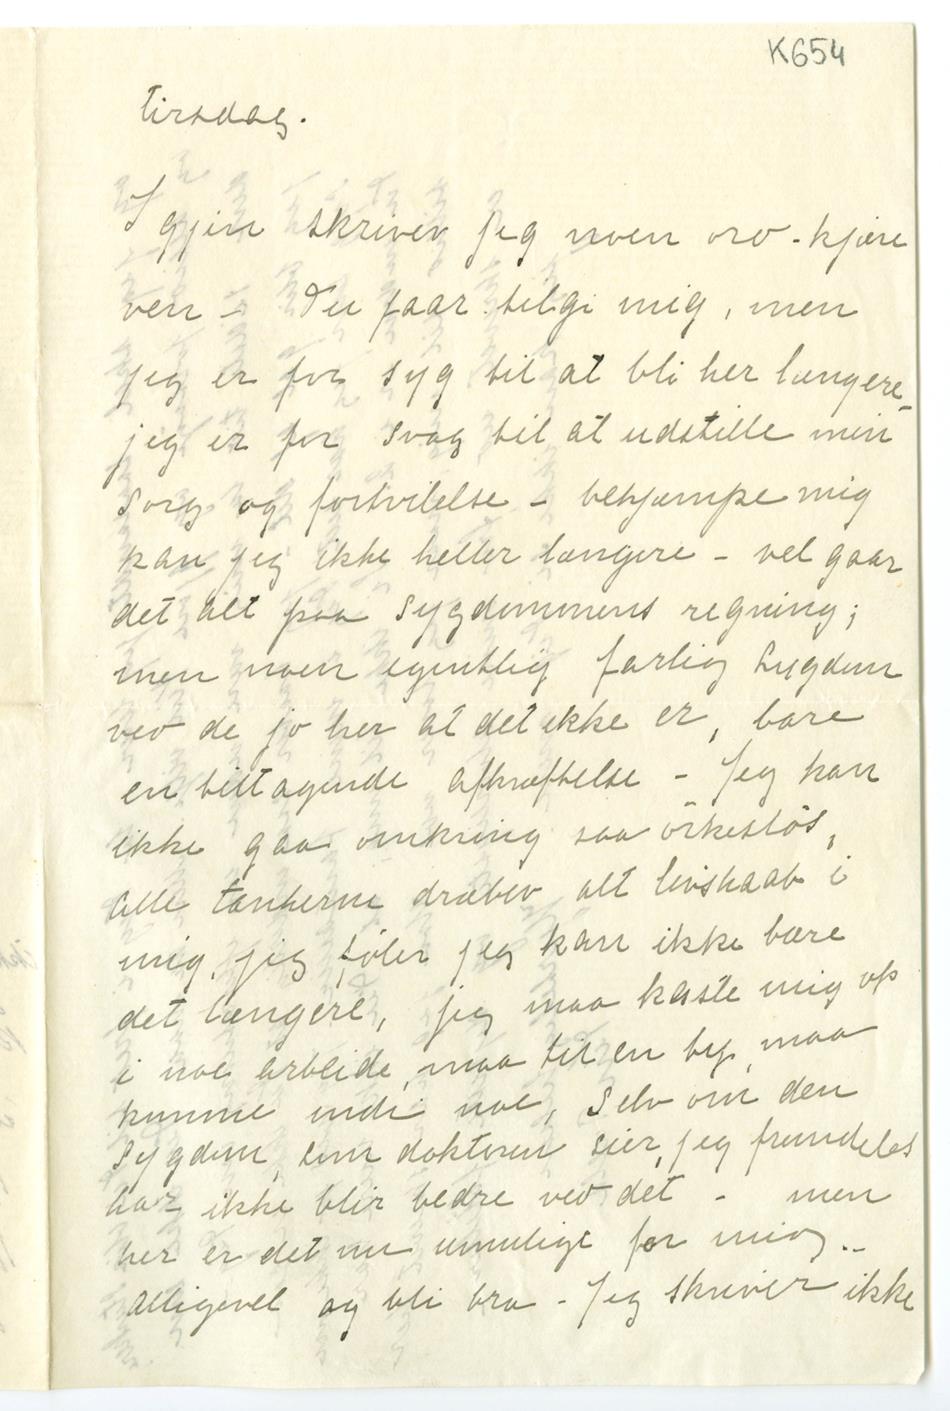 K654
Tirsdag.
Igjen skriver jeg noen ord - kjære
ven - Du faar tilgi mig, men
jeg er for syg til at bli her længere -
jeg er for svag til at udstille min
sorg og fortvilelse - bekjæmpe mig
kan jeg ikke heller længere - vel gaar
det alt paa sygdommens regning;
men noen egentlig farlig sygdom
ved de jo her at det ikke er, bare
en tiltagende afkræftelse - Jeg kan
ikke gaa omkring saa örkeslös,
alle tankerne dræber alt livshaab i
mig, jeg föler jeg kan ikke bære
det længere, jeg maa kaste mig op
i noe arbeide, maa til en by, maa
komme indi noe, selv om den
sygdom, som doktoren sier, jeg fremdeles
har ikke blir bedre ved det - men
her er det nu umulige for mig -
alligevel og bli bra - Jeg skriver ikke